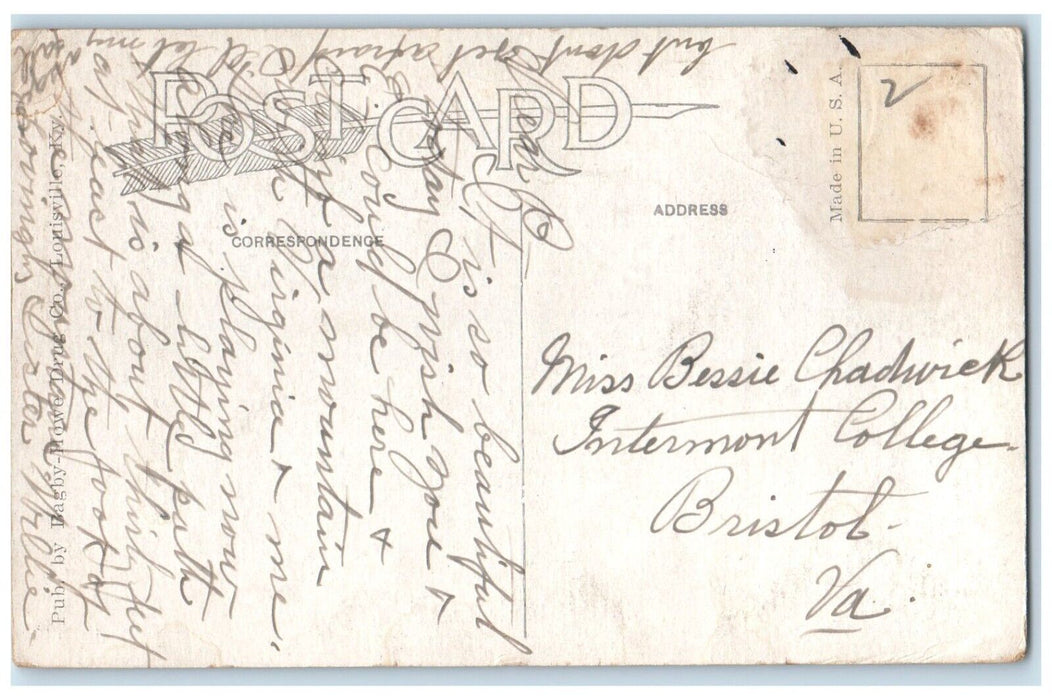 POST CARD
CORRESPONDENCE
ADDRESS
Made in U. S. A.
2
Pub. by Bagby-Howe Drug Co., Louisville, Ky.
Miss Bessie Chadwick
Intermont College
Bristol
Va.
Dear B
It is so beautiful
today & I wish you &
could be here &
of a mountain
Virginia & me.
is playing now
a little path
is about thirty feet
at least to the foot of
but don't get afraid I'll let my
loving Sister Mollie